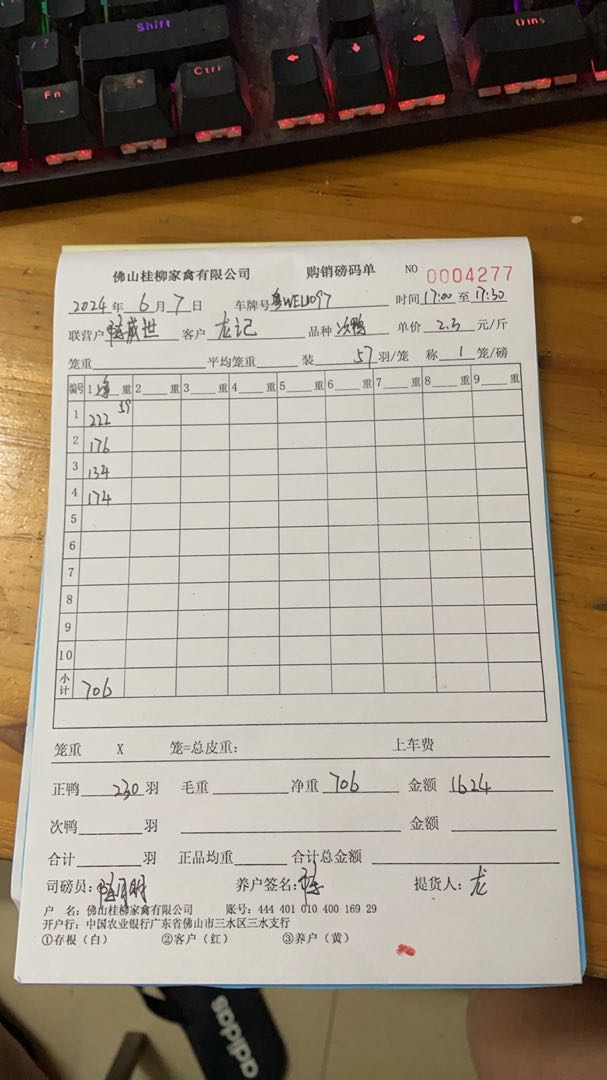 Shift
Ctrl
Fn
佛山桂柳家禽有限公司 购销磅码单 NO 0004277
2024年 6月 7日 车牌号粤WEL1097 时间17:00至17:30
联营户 客户 龙记 品种 次鸭 单价 2.3 元/斤
笼重 平均笼重 装 57 羽/笼 称 1 笼/磅
编号 1 净 重 2 重 3 重 4 重 5 重 6 重 7 重 8 重 9 重
1 222
2 176
3 134
4 174
5
6
7
8
9
10
小计 706
笼重 X 笼=总皮重: 上车费
正鸭 230 羽 毛重 净重 706 金额 1624
次鸭 羽 金额
合计 羽 正品均重 合计总金额
司磅员: 养户签名: 提货人: 龙
户 名: 佛山桂柳家禽有限公司 账号: 444 401 010 400 169 29
开户行: 中国农业银行广东省佛山市三水区三水支行
①存根(白) ②客户(红) ③养户(黄)
adidas